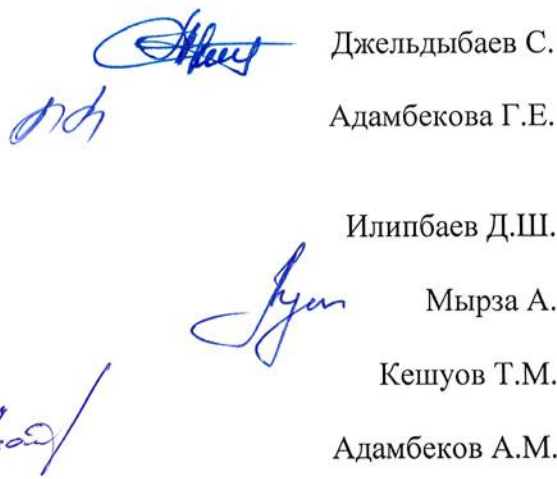 Джельдыбаев С.
Адамбекова Г.Е.
Илипбаев Д.Ш.
Мырза А.
Кешуов Т.М.
Адамбеков А.М.